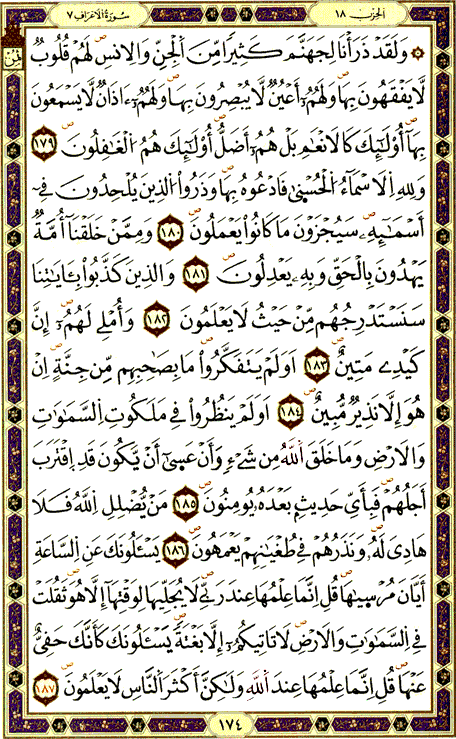 الحزب ١٨
سورة الاعراف ٧
ثمن
۞ وَلَقَدْ ذَرَأْنَا لِجَهَنَّمَ كَثِيرًا مِّنَ اَ۬لْجِنِّ وَالِانسِ لَهُمْ قُلُوبٌ
لَّا يَفْقَهُونَ بِهَا وَلَهُمُۥٓ أَعْيُنٌ لَّا يُبْصِرُونَ بِهَا وَلَهُمُۥٓ ءَاذَانٌ لَّا يَسْمَعُونَ
بِهَآ أُوْلَٰٓئِكَ كَالَانْعَٰمِ بَلْ هُمُۥٓ أَضَلُّ أُوْلَٰٓئِكَ هُمُ اُ۬لْغَٰفِلُونَ ١٧٩
وَلِلهِ اِ۬لَاسْمَآءُ اُ۬لْحُسْنَىٰ فَادْعُوهُ بِهَا وَذَرُواْ اُ۬لذِينَ يُلْحِدُونَ فِےٓ
أَسْمَٰٓئِهِۦ سَيُجْزَوْنَ مَا كَانُواْ يَعْمَلُونَ ١٨٠ وَمِمَّنْ خَلَقْنَآ أُمَّةٌ
يَهْدُونَ بِالْحَقِّ وَبِهِۦ يَعْدِلُونَ ١٨١ وَالذِينَ كَذَّبُواْ بِـَٔايَٰتِنَا
سَنَسْتَدْرِجُهُم مِّنْ حَيْثُ لَا يَعْلَمُونَ ١٨٢ وَأُمْلِے لَهُمُۥٓ إِنَّ
كَيْدِے مَتِينٌ ١٨٣ اَوَلَمْ يَتَفَكَّرُواْ مَا بِصَٰحِبِهِم مِّن جِنَّةٍ اِنْ
هُوَ إِلَّا نَذِيرٌ مُّبِينٌ ١٨٤ اَوَلَمْ يَنظُرُواْ فِے مَلَكُوتِ اِ۬لسَّمَٰوَٰتِ
وَالَارْضِ وَمَا خَلَقَ اَ۬للَّهُ مِن شَےْءٍ وَأَنْ عَسَىٰٓ أَنْ يَّكُونَ قَدِ اِ۪قْتَرَبَ
أَجَلُهُمْ فَبِأَيِّ حَدِيثٍ بَعْدَهُۥ يُومِنُونَ ١٨٥ مَنْ يُّضْلِلِ اِ۬للَّهُ فَلَا
هَادِيَ لَهُۥ وَنَذَرُهُمْ فِے طُغْيَٰنِهِمْ يَعْمَهُونَ ١٨٦ يَسْـَٔلُونَكَ عَنِ اِ۬لسَّاعَةِ
أَيَّانَ مُرْسَىٰهَا قُلِ اِنَّمَا عِلْمُهَا عِندَ رَبِّے لَا يُجَلِّيهَا لِوَقْتِهَآ إِلَّا هُوَ ثَقُلَتْ
فِے اِ۬لسَّمَٰوَٰتِ وَالَارْضِ لَا تَاتِيكُمُۥٓ إِلَّا بَغْتَةً يَسْـَٔلُونَكَ كَأَنَّكَ حَفِيٌّ
عَنْهَا قُلِ اِنَّمَا عِلْمُهَا عِندَ اَ۬للَّهِ وَلَٰكِنَّ أَكْثَرَ اَ۬لنَّاسِ لَا يَعْلَمُونَ ١٨٧
١٧٤